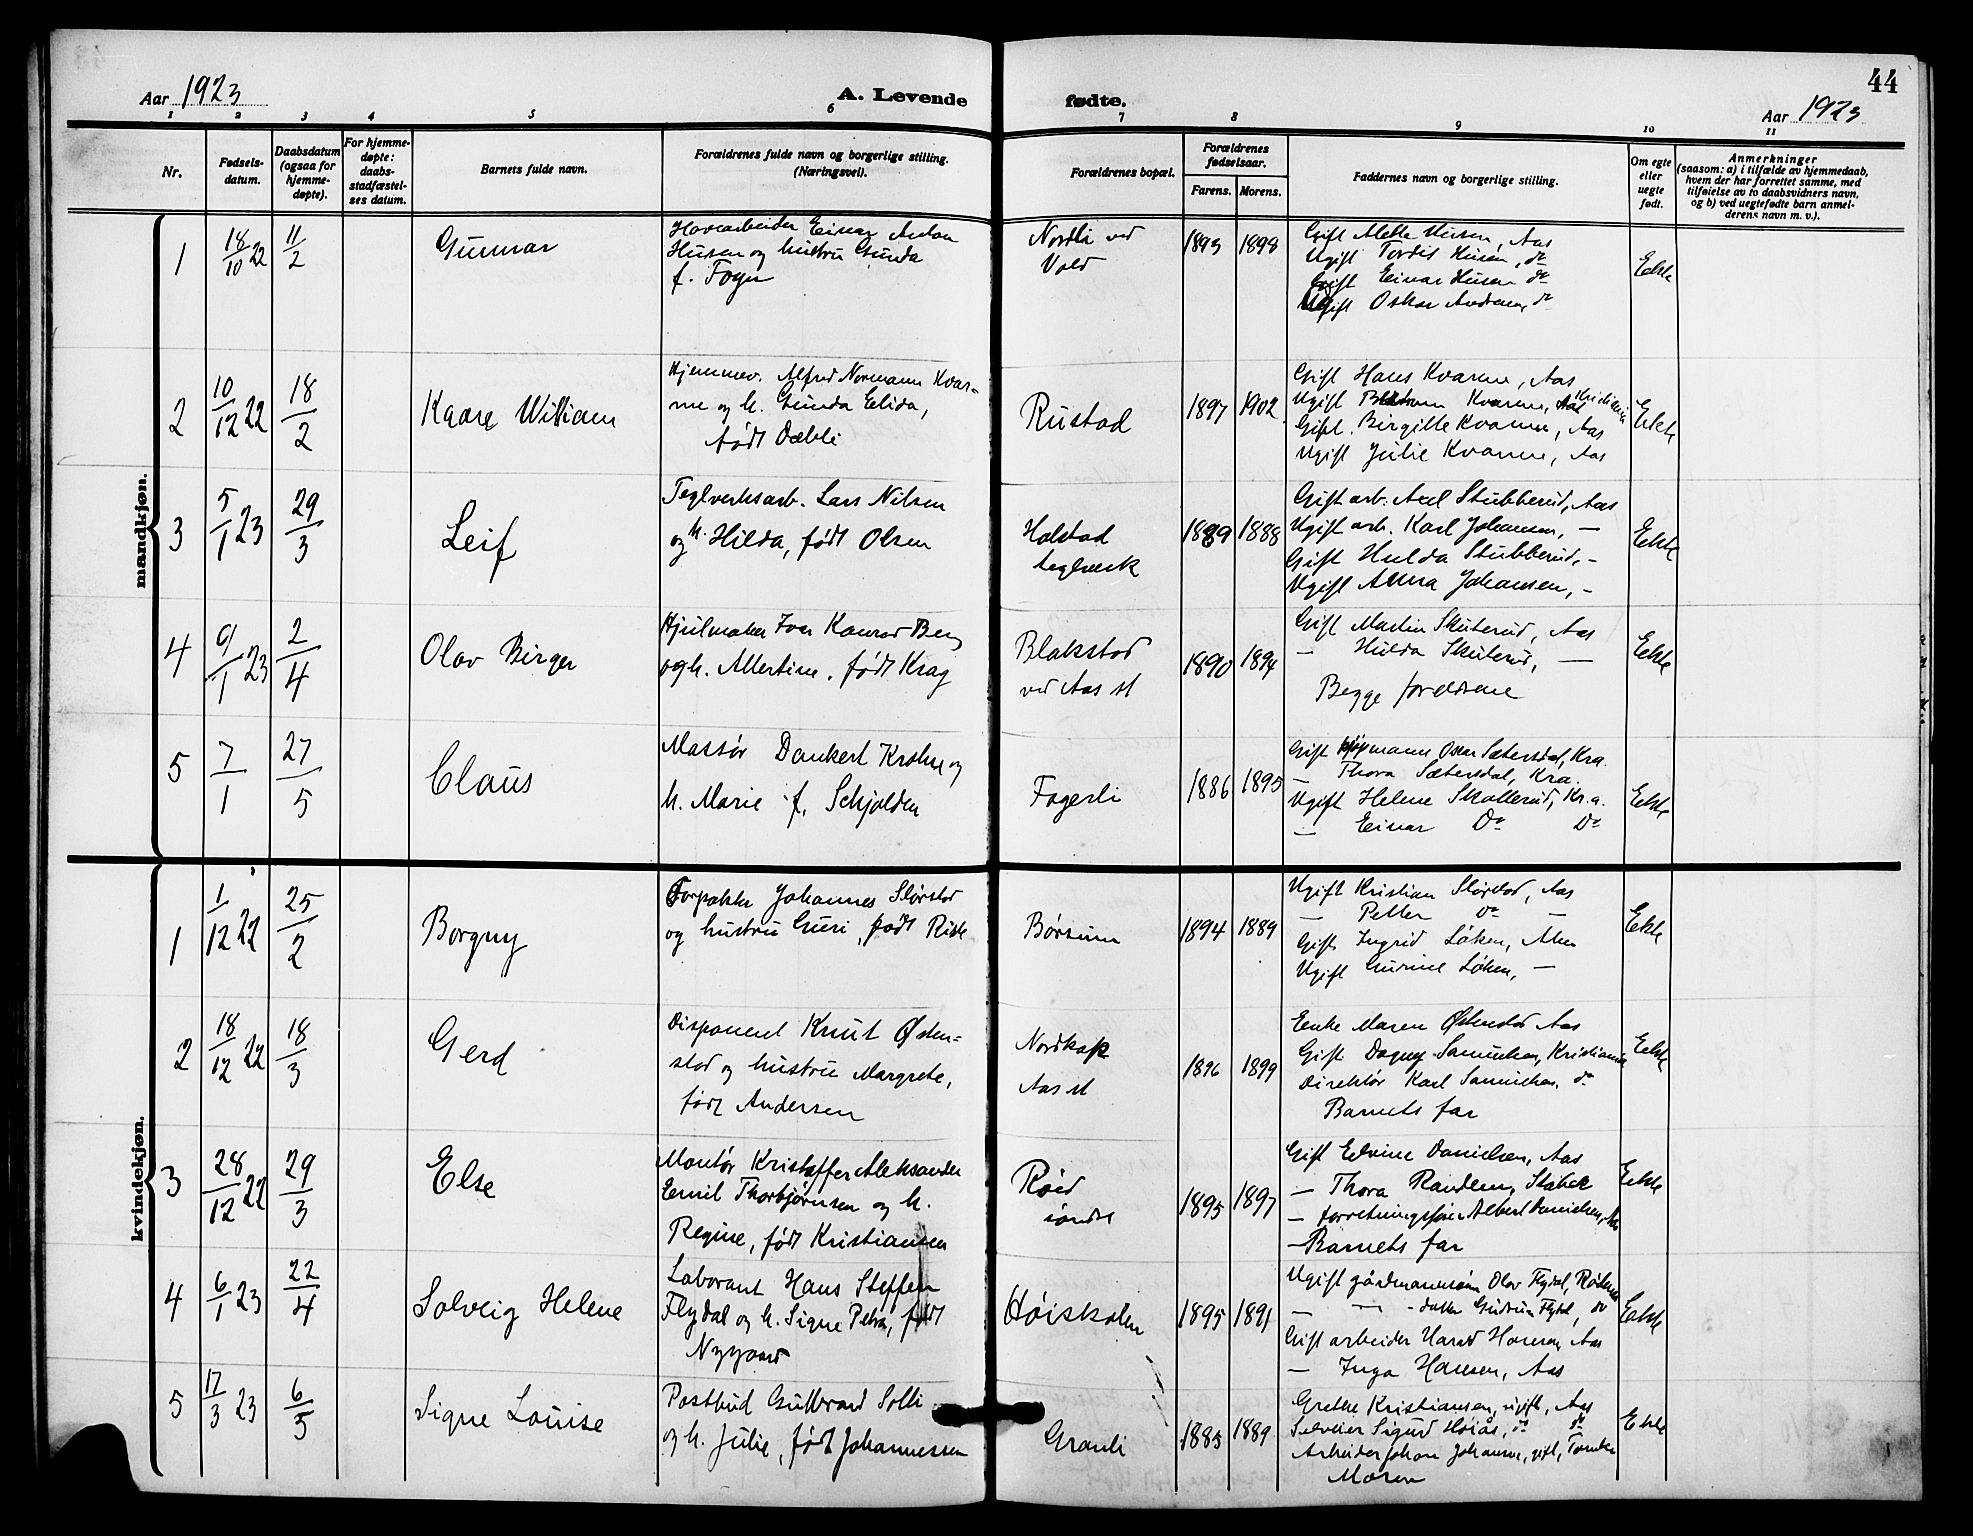 44
Aar 1923
A. Levende fødte.
Aar 1923
1 2 3 4 5 6 7 8 9 10 11
Nr.
Fødsels-
datum.
Daabsdatum
(ogsaa for
hjemme-
døpte).
For hjemme-
døpte:
daabs-
stadfæstel-
ses datum.
Barnets fulde navn.
Forældrenes fulde navn og borgerlige stilling.
(Næringsvei).
Forældrenes bopæl.
Forældrenes
fødselsaar.
Farens. Morens.
Faddernes navn og borgerlige stilling.
Om egte
eller
uegte
født.
Anmerkninger
(saasom: a) i tilfælde av hjemmedaab,
hvem der har forrettet samme, med
tilføielse av to daabsvidners navn,
og b) ved uegtefødte barn anmel-
derens navn m. v.).
mandkjøn.
1
18/10 22
11/2
Gunnar
Havearbeider Einar Anton
Husen og hustru Gunda
f. Foyn
Nordli ved
Vold
1893
1898
Gift Mette Husen, Aas
Ugift Tordis Husen, do
Gift Einar Husen do
Ugift Oskar Andersen, do
Ekte
2
10/12 22
18/2
Kaare William
Hjemmev. Alfred Normann Kvar-
me og h. Gunda Elida,
født Dæhli
Rustad
1897
1902
Gift Hans Kvarme, Aas
Ugift Kvarme, Kristiania
Gift. Birgitte Kvarme, Aas
Ugift Julie Kvarme, Aas
Ekte
3
5/1 23
29/3
Leif
Teglverksarb. Lars Nilsen
og h. Hilda, født Olsen
Holstad
teglverk
1889
1888
Gift arb. Axel Stubberud, Aas
Ugift arb. Karl Johansen, —
Gift Hulda Stubberud, -
Ugift Anna Johansen, -
Ekte
4
9/1 23
2/4
Olav Birger
Hjulmaker Ivar Konrad Berg
og h. Albertine, født Krag
Blakstad
ved Aas st
1890
1894
Gift Martin Skuterud, Aas
— Hulda Skuterud, —
Begge foreldrene
Ekte
5
7/1
27/5
Claus
Massør Dankert Krohn og
h. Marie f. Schjolden
Fagerli
1886
1895
Gift kjøpmann Oskar Sætersdal, Kra.
— Thora Sætersdal, Kra.
Ugift Helene Skollerud, Kr.a.
— Einar Do Do
Ekte
kvindekjøn.
1
1/12 22
25/2
Borgny
Forpakter Johannes Slørstad
og hustru Guri, født Risk
Børsum
1894
1889
Ugift Kristian Slørstad, Aas
— Petter do —
Gift Ingrid Løken,
Ugift Gurine Løken, —
Ekte
2
18/12 22
18/3
Gerd
Disponent Knut Østen-
stad og hustru Margrete,
født Andersen
Nordkap
Aas st
1896
1899
Enke Maren Østenstad Aas
Gift Dagny Samuelsen, Kristiania
Direktør Karl Samuelsen, do
Barnets far
Ekte
3
28/12 22
29/3
Else
Montør Kristoffer Aleksander
Emil Thorbjørnsen og h.
Regine, født Kristiansen
Røed
søndre
1895
1897
Gift Edvine Danielsen, Aas
— Thora Randem, Stabek
— forretningsfører Albert Danielsen, Aas
— Barnets far
Ekte
4
6/1 23
22/4
Solveig Helene
Laborant Hans Steffen
Flydal og h. Signe Petra, født
Nygaard
Høiskolen
1895
1891
Ugift gårdmannssønn Olav Flydal,
— — - datter Gudrun Flydal, do
Gift arbeider Harald Hansen, Aas
— Inga Hansen, Aas
Ekte
5
17/3 23
6/5
Signe Louise
Postbud Gulbrand Solli
og h. Julie, født Johannessen
Granli
1885
1889
Grethe Kristiansen, ugift, Aas
Selveier Sigurd Høiås, do do
Arbeider Johan Johansen, gift,
Moren
Ekte